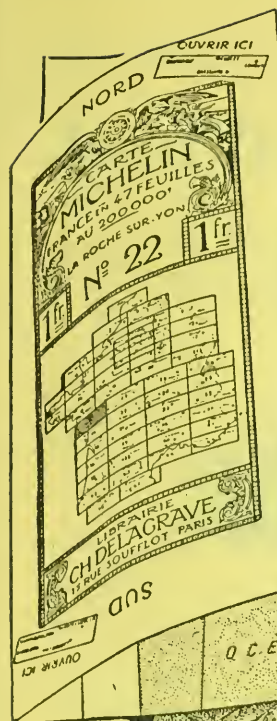 OUVRIR ICI
NORD
CARTE
MICHELIN
FRANCE IN 47 FEUILLES
AU 200.000ᵉ
LA ROCHE SUR-YON
Nº 22
1 fr.
1 fr.
LIBRAIRIE
CH DELAGRAVE
15 RUE SOUFFLOT PARIS
SUD
OUVRIR ICI
Q.C.E